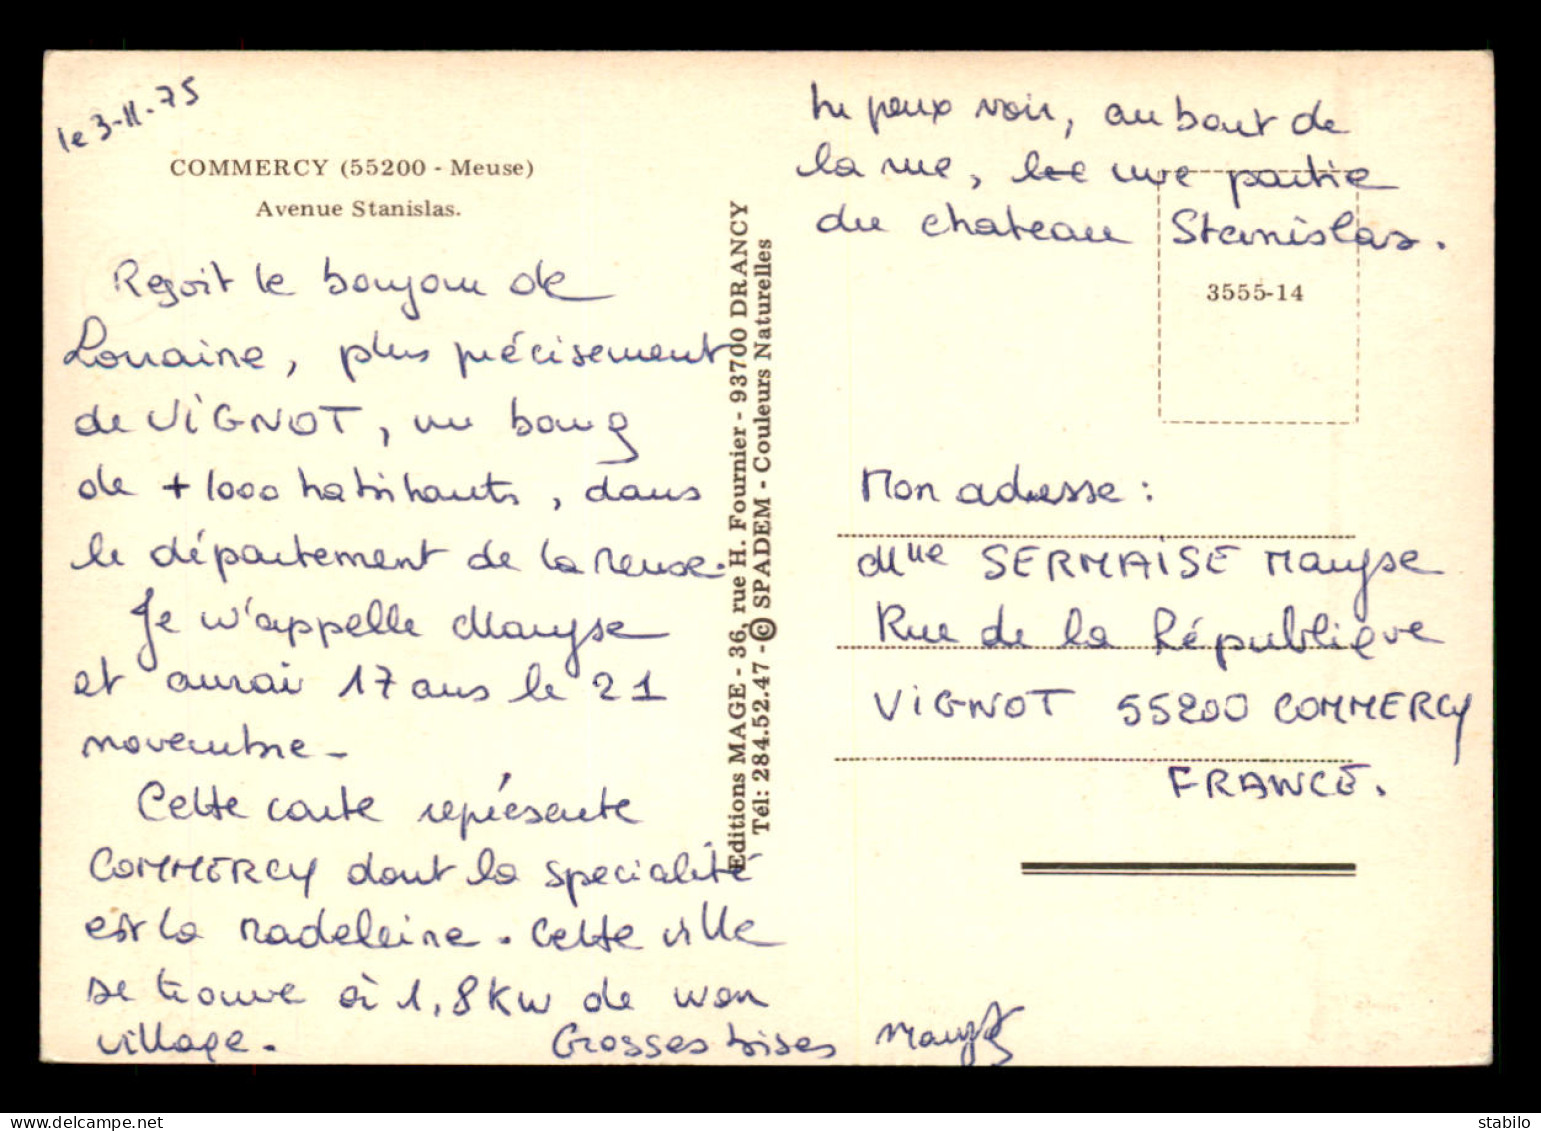 le 3-11-75
COMMERCY (55200 - Meuse)
Avenue Stanislas.
Reçoit le bonjour de
Lorraine, plus précisement
de ViGNOT, un bourg
de + 1000 habitants, dans
le département de la Meuse.
Je m'appelle Maryse
et aurai 17 ans le 21
novembre -
Cette carte représente
COMMERCY dont la specialité
est la Madeleine. Cette ville
se trouve à 1,8 Km de mon
village.
Grosses bises Maryse
Editions MAGE - 36, rue H. Fournier - 93700 DRANCY
Tél: 284.52.47 - © SPADEM - Couleurs Naturelles
tu peux voir, au bout de
la rue, une partie
du chateau Stanislas.
3555-14
Mon adresse :
Mlle SERMAISE Maryse
Rue de la République
ViGNOT 55200 COMMERCY
FRANCE.
stabilo